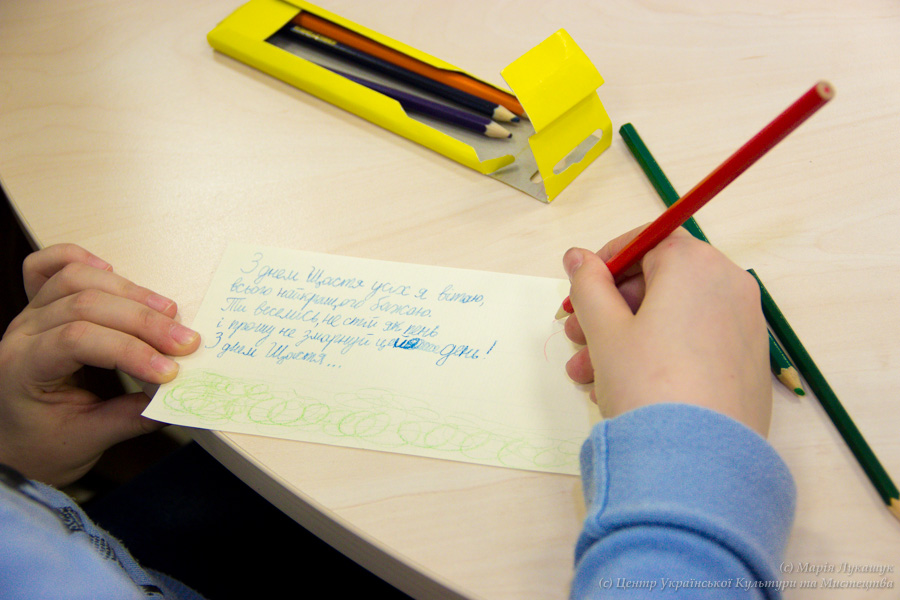 З днем Щастя усіх я вітаю,
всього найкращого бажаю.
Ти веселись, не стій як пень
і прошу не змарнуй цей день!
З днем Щастя...
(c) Марія Лукащук
(c) Центр Української Культури та Мистецтва